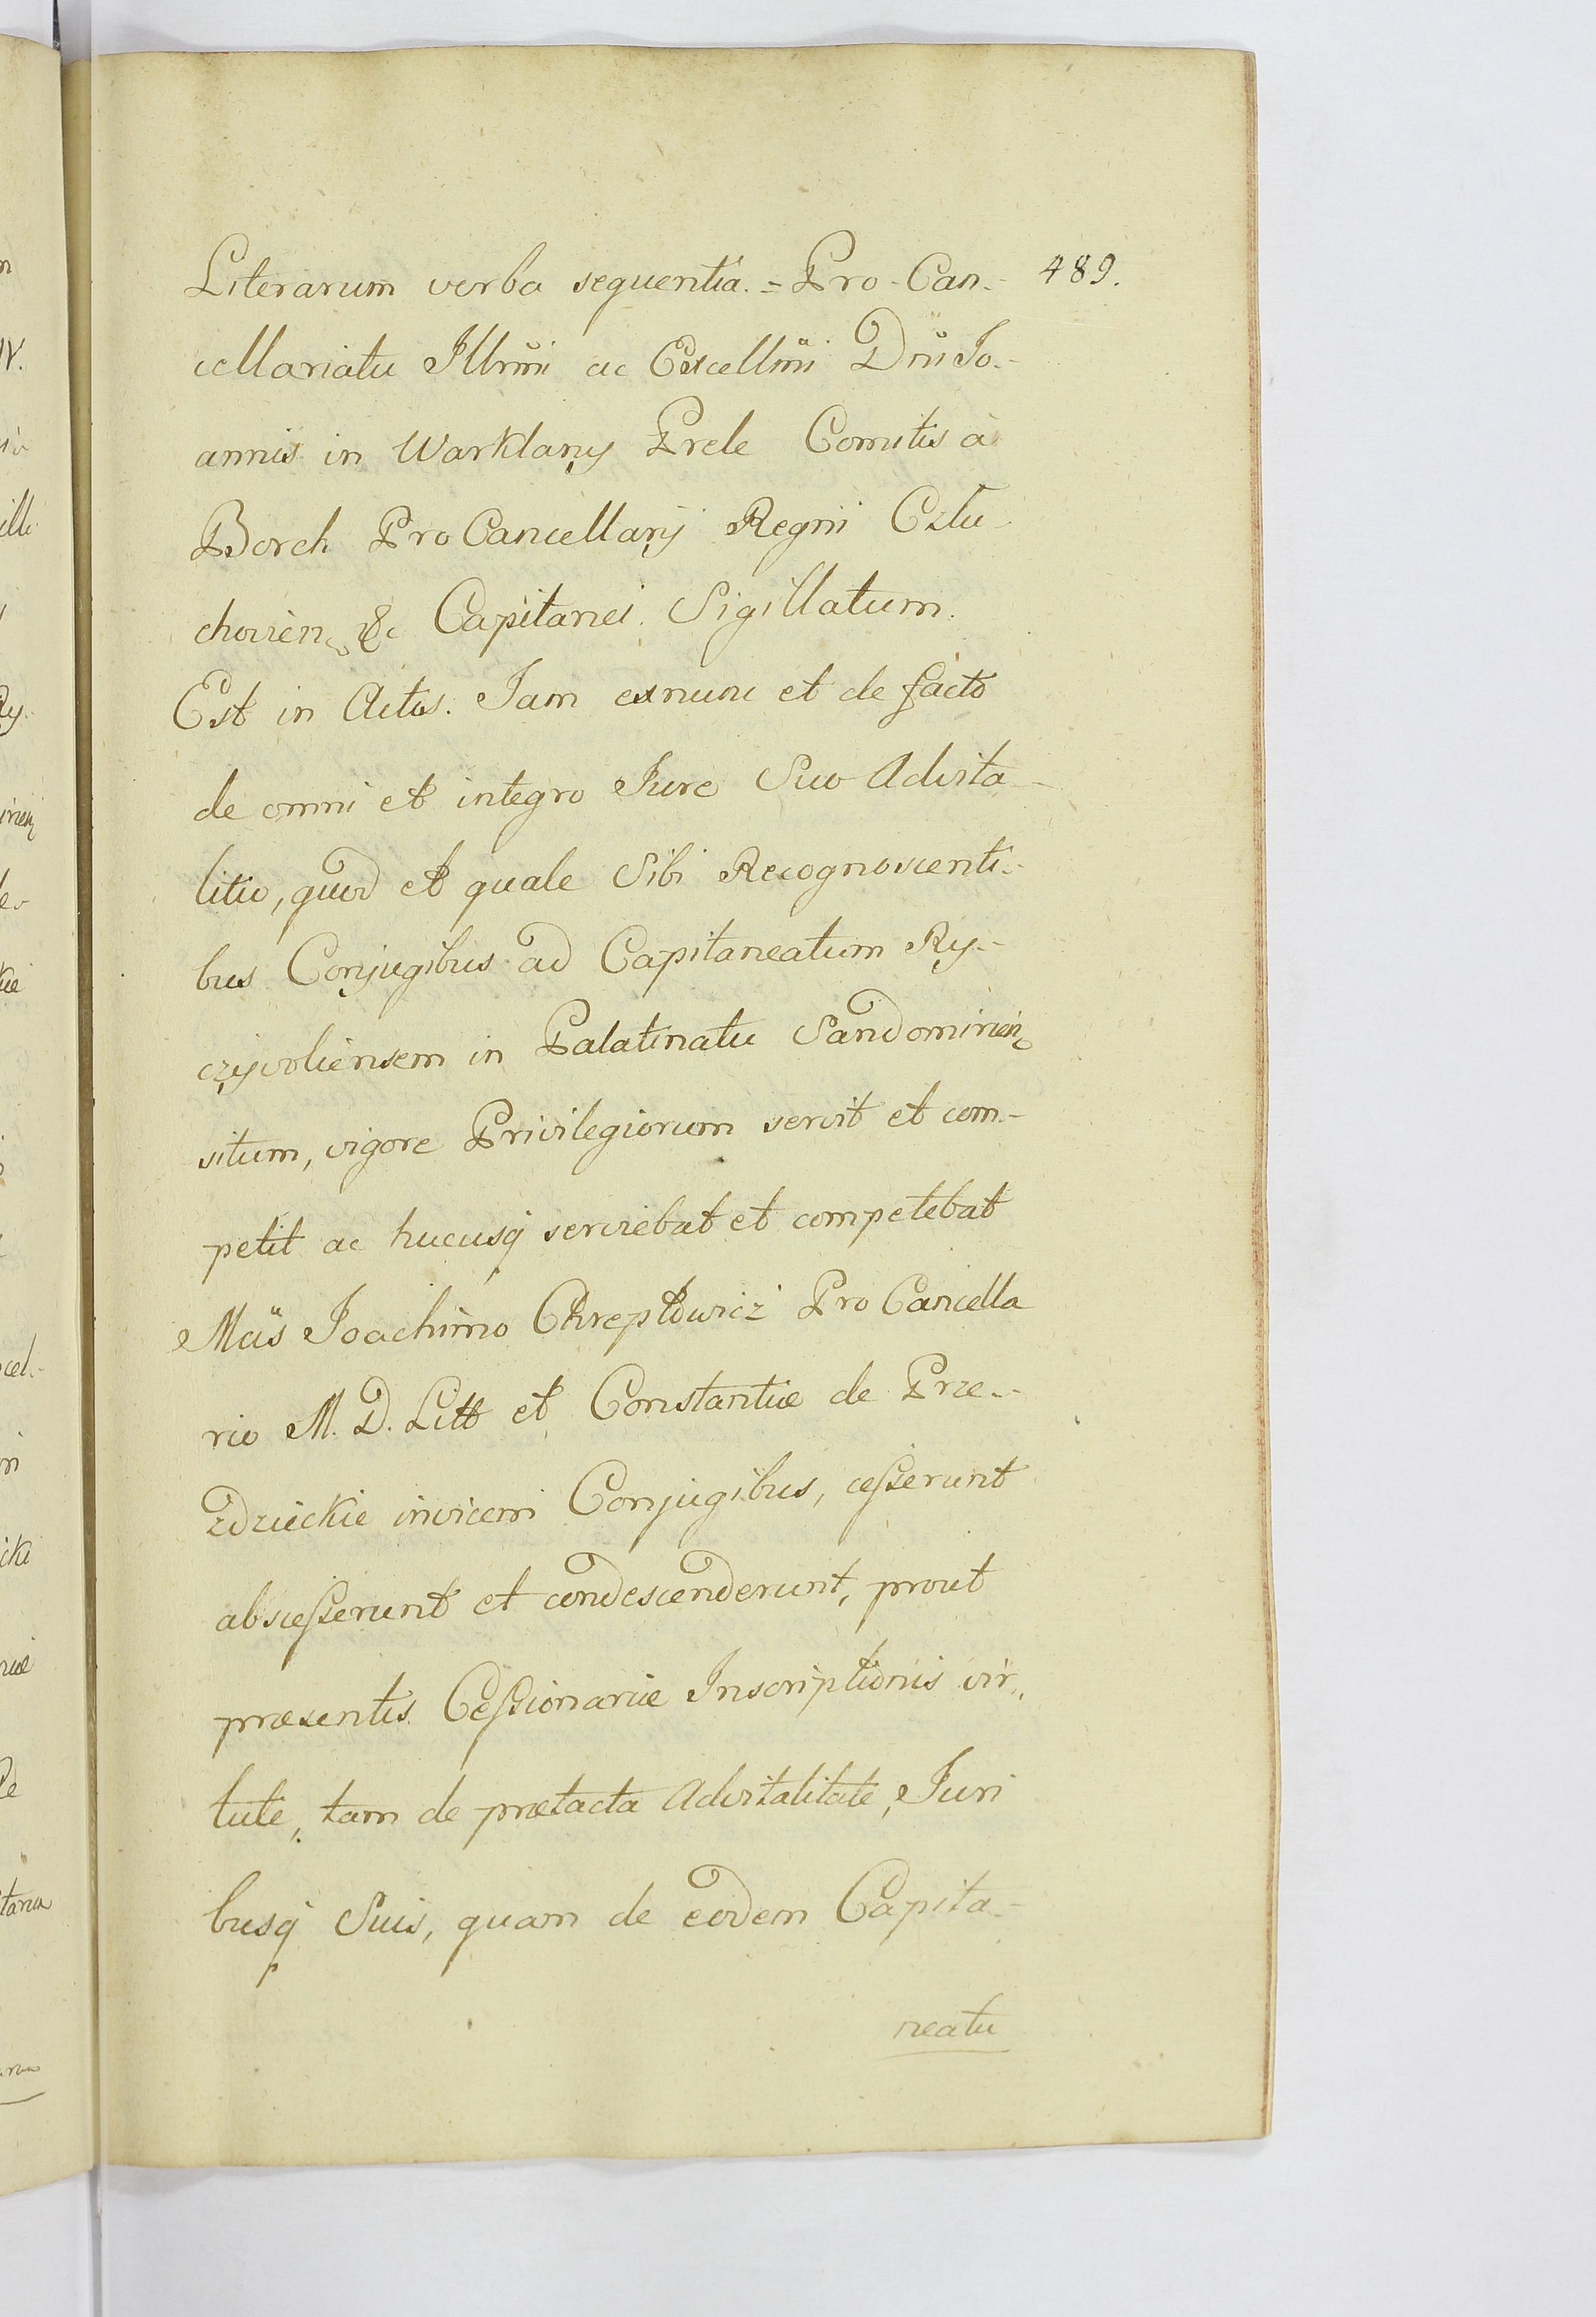 Literarum verba sequentia. = Pro-Can- 489.
cellariatu Illrmi ac Excellmi Dni Jo-
annis in Warklany Prele Comitis à
Borch Pro Cancellarij Regni Czlu-
chovien &c Capitanei. Sigillatum.
Est in Actis. Jam exnunc et de facto
de omni et integro Jure Suo Advita-
litio, quod et quale Sibi Recognoscenti-
bus Conjugibus ad Capitaneatum Ry-
czyvoliensem in Palatinatu Sandomirien
situm, vigore Privilegiorum servit et com-
petit ac hucusq serviebat et competebat
Mcis Joachimo Chreptowicz Pro Cancella
rio M. D. Litt et Constantiæ de Prze-
zdzieckie invicem Conjugibus, cesserunt
abscesserunt et condescenderunt, prout
præsentis Cessionariæ Inscriptionis vir„
tute, tam de prætacta Advitalitate, Juri
busq Suis, quam de eodem Capita-
neatu